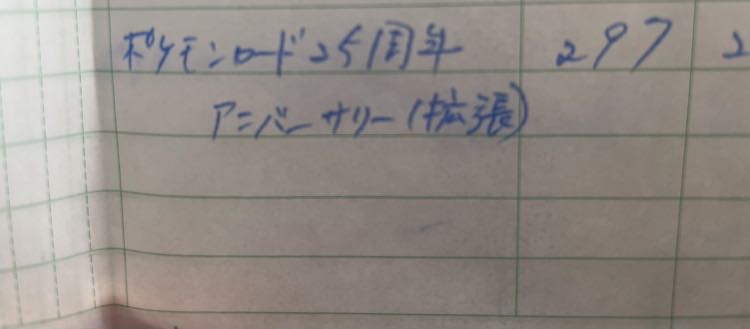 ポケモンロード25周年 297 2
アニバーサリー(拡張)